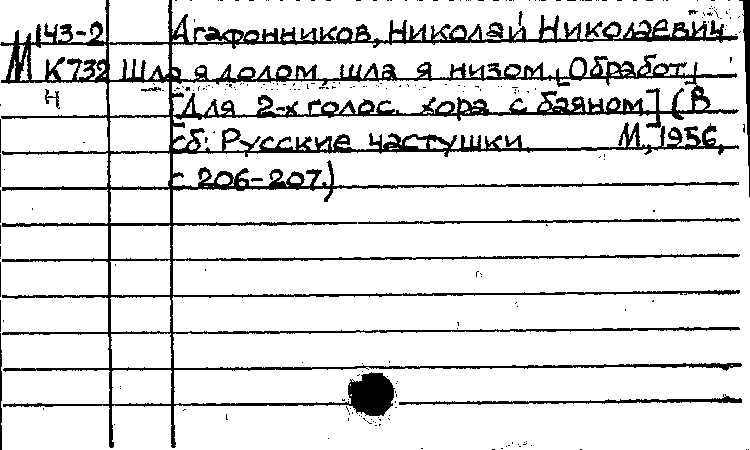 143-2 Агафонников, Николай Николаевич
М К732 Шла я долом, шла я низом. [Обработ.]
Н [Для 2-х голос. хора с баяном.] (В
сб: Русские частушки. М., 1956,
с 206-207.)